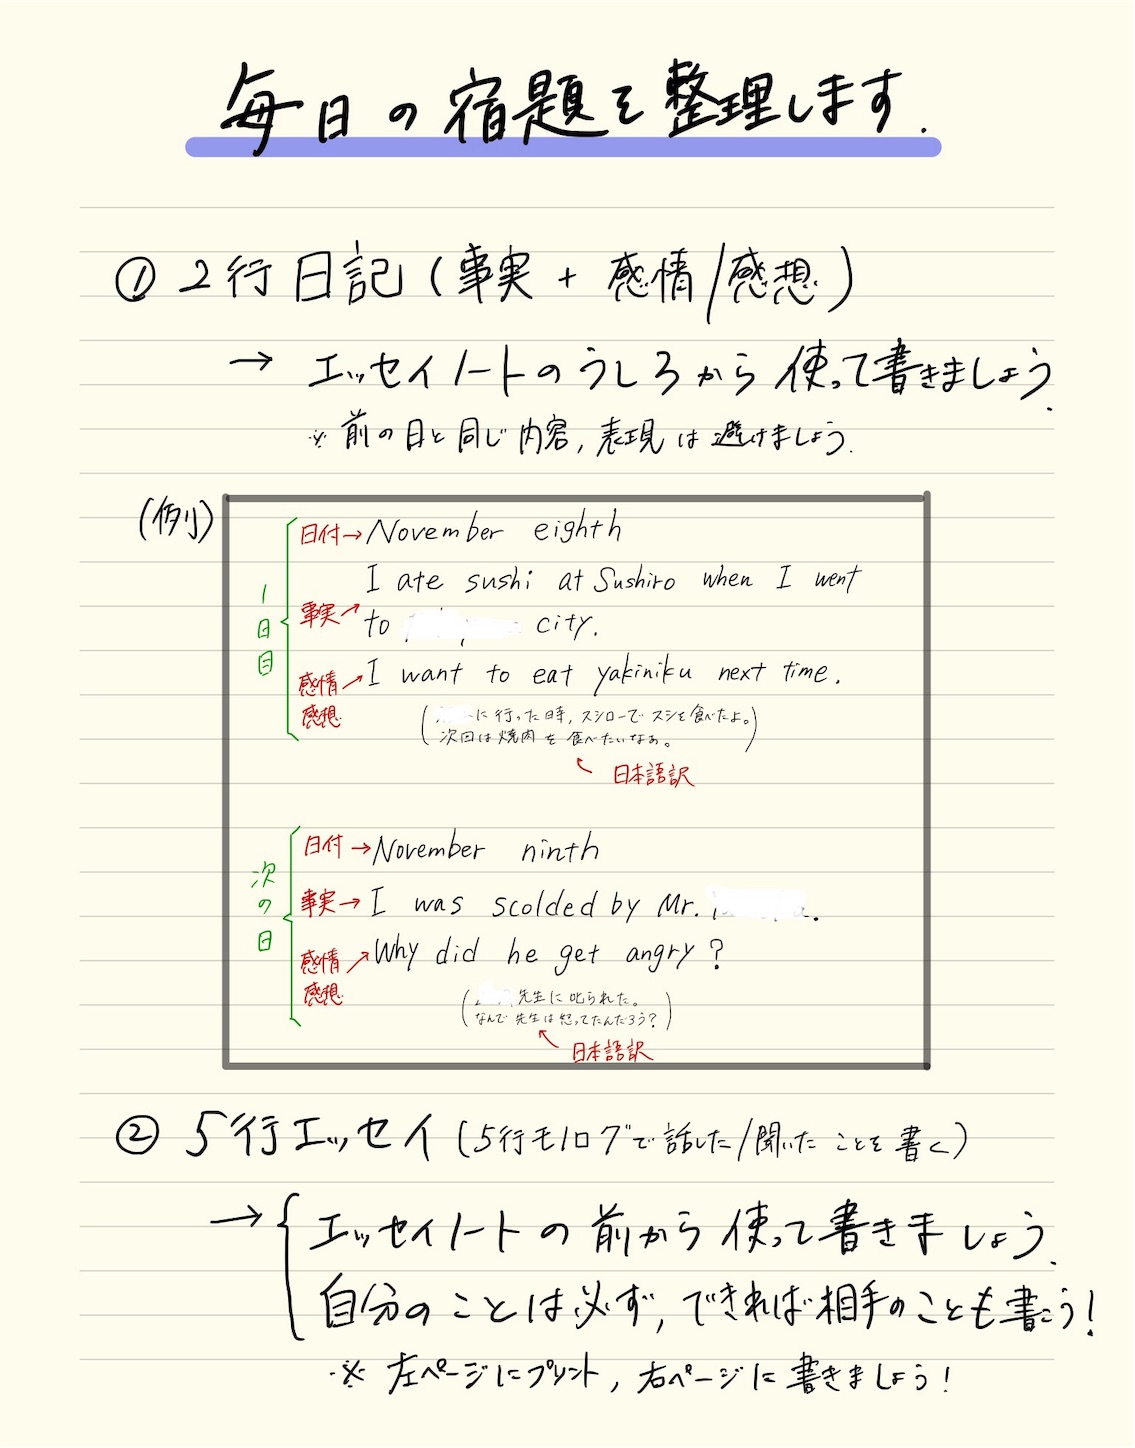 毎日の宿題を整理します.
① 2行日記(事実 + 感情/感想)
→ エッセイノートのうしろから使って書きましょう.
※ 前の日と同じ内容, 表現は避けましょう.
(例)
1日目
日付→ November eighth
I ate sushi at Sushiro when I went
事実→ to city.
感情感想→ I want to eat yakiniku next time.
(に行った時, スシローでスシを食べたよ。
次回は焼肉を食べたいなぁ。)
日本語訳
次の日
日付→ November ninth
事実→ I was scolded by Mr. .
感情感想→ Why did he get angry?
(先生に叱られた。
なんで先生は怒ってたんだろう?)
日本語訳
② 5行エッセイ(5行モノローグで話した/聞いたことを書く)
→ エッセイノートの前から使って書きましょう.
自分のことは必ず, できれば相手のことも書こう!
※ 左ページにプリント, 右ページに書きましょう!